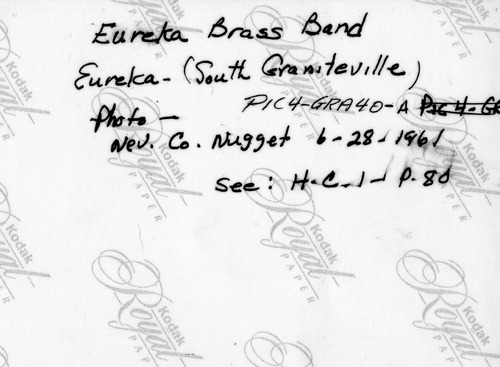 Eureka Brass Band
Eureka - (South Graniteville)
PIC4-GRA40-A PIC 4-GR
Photo -
Nev. Co. Nugget 6-28-1961
see: H-C-1- P.80
Kodak
Royal
PAPER